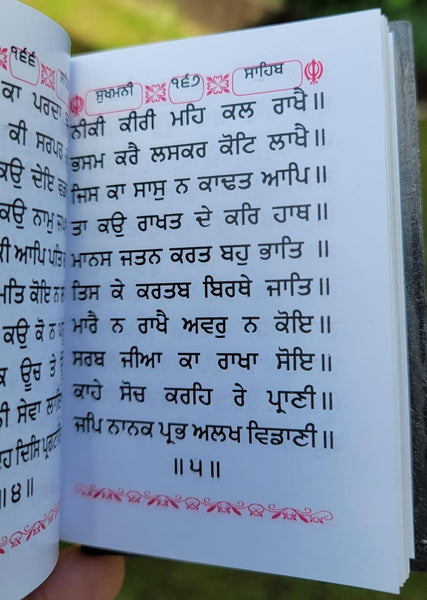 ੧੬੬
ਕਾ ਪਰਦਾ
ਕੀ ਸਰਪਰ
ਕਉ ਦੇਇ
ਕਉ ਨਾਮੁ
ਕੀ ਆਪਿ ਪਤਿ
ਮਤਿ ਕੋਇ ਨ
ਕਉ ਕੋ ਨ
ਊਚ ਤੇ
ਸੇਵਾ ਲਾਇ
ਦਿਸਿ
॥੪॥
ਸੁਖਮਨੀ ੧੬੭ ਸਾਹਿਬ
ਨੀਕੀ ਕੀਰੀ ਮਹਿ ਕਲ ਰਾਖੈ॥
ਭਸਮ ਕਰੈ ਲਸਕਰ ਕੋਟਿ ਲਾਖੈ॥
ਜਿਸ ਕਾ ਸਾਸੁ ਨ ਕਾਢਤ ਆਪਿ॥
ਤਾ ਕਉ ਰਾਖਤ ਦੇ ਕਰਿ ਹਾਥ॥
ਮਾਨਸ ਜਤਨ ਕਰਤ ਬਹੁ ਭਾਤਿ ॥
ਤਿਸ ਕੇ ਕਰਤਬ ਬਿਰਥੇ ਜਾਤਿ॥
ਮਾਰੈ ਨ ਰਾਖੈ ਅਵਰੁ ਨ ਕੋਇ॥
ਸਰਬ ਜੀਆ ਕਾ ਰਾਖਾ ਸੋਇ॥
ਕਾਹੇ ਸੋਚ ਕਰਹਿ ਰੇ ਪ੍ਰਾਣੀ॥
ਜਪਿ ਨਾਨਕ ਪ੍ਰਭ ਅਲਖ ਵਿਡਾਣੀ॥
॥੫॥